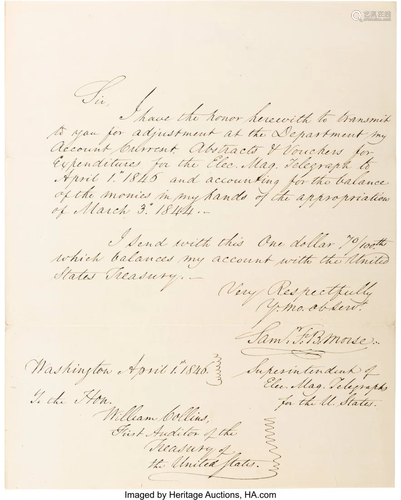 Sir,
I have the honor herewith to transmit
to you for adjustment at the Department my
Account Current Abstracts & Vouchers for
Expenditures for the Elec. Mag. Telegraph to
April 1st 1846 and accounting for the balance
of the monies in my hands of the appropriation
of March 3d 1844.—
I send with this One dollar 70/100ths
which balances my account with the United
States Treasury.—
Very Respectfully
Yr. mo. ob Servt.
Saml. F. B. Morse.
Superintendent of
Elec. Mag. Telegraphs
for the U. States.
Washington April 1st 1846.
To the Hon.
William Collins,
First Auditor of the
Treasury of
the United States.
Imaged by Heritage Auctions, HA.com